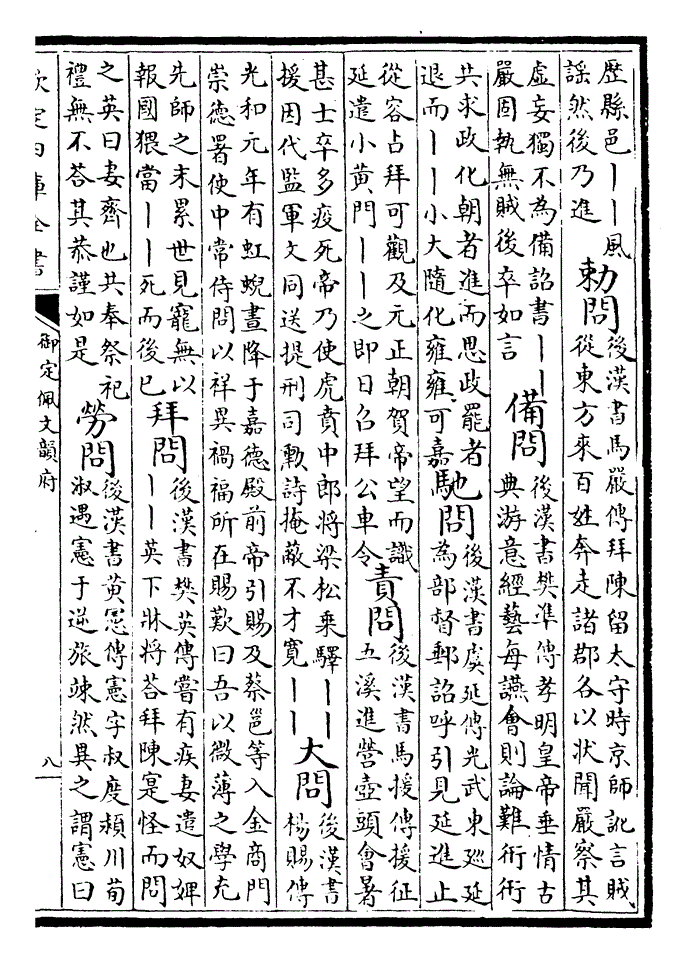 歴縣邑丨丨風
謡然後乃進
勅問
後漢書馬嚴傳拜陳留太守時京師訛言賊
從東方來百姓奔走諸郡各以状聞嚴察其
虚妄獨不為備詔書丨丨
嚴固執無賊後卒如言
備問
後漢書樊準傳孝明皇帝垂情古
典游意經藝每讌會則論難術術
共求政化朝者進而思政罷者
退而丨丨小大隨化雍雍可嘉
馳問
後漢書虞延傳光武東廵延
為部督郵詔呼引見延進止
從容占拜可觀及元正朝賀帝望而識
延遣小黄門丨丨之即日召拜公車令
責問
後漢書馬援傳援征
五溪進營壺頭會暑
甚士卒多疫死帝乃使虎賁中郎將梁松乗驛丨丨
援因代監軍文同送提刑司勲詩掩蔽不才寛丨丨
大問
後漢書
楊賜傳
光和元年有虹蜺晝降于嘉德殿前帝引賜及蔡邕等入金商門
崇德署使中常侍問以祥異禍福所在賜歎曰吾以微薄之學充
先師之末累世見寵無以
報國猥當丨丨死而後已
拜問
後漢書樊英傳嘗有疾妻遣奴婢
丨丨英下牀將荅拜陳寔怪而問
之英曰妻齊也共奉祭祀
禮無不荅其恭謹如是
勞問
後漢書黄憲傳憲字叔度潁川荀
淑遇憲于逆旅竦然異之謂憲曰
欽定四庫全書
御定佩文韻府
八